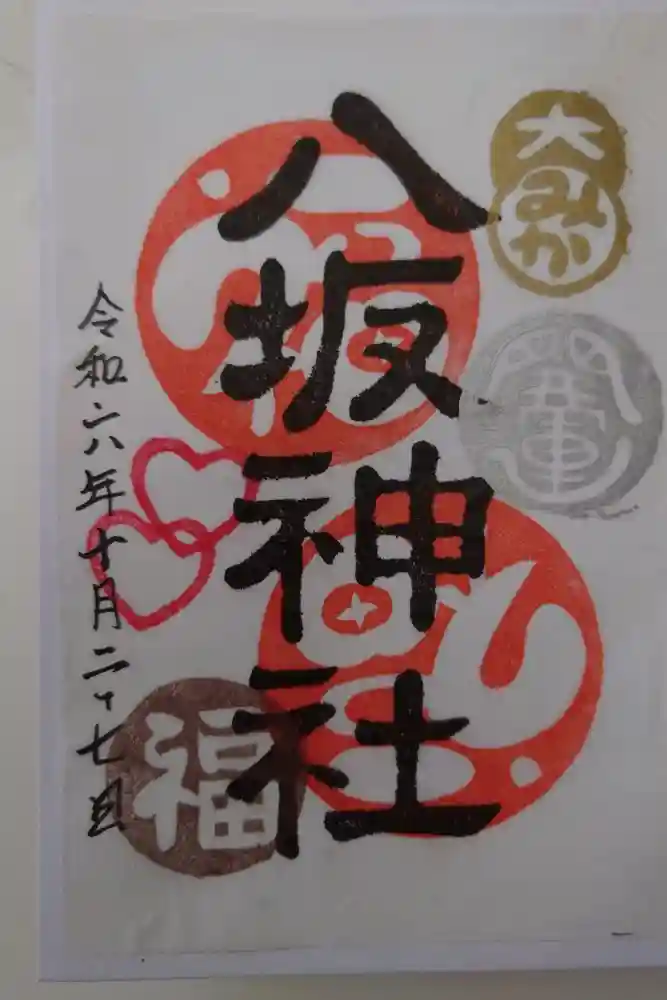 大
みか
八坂神社
福
令和六年十月二十七日